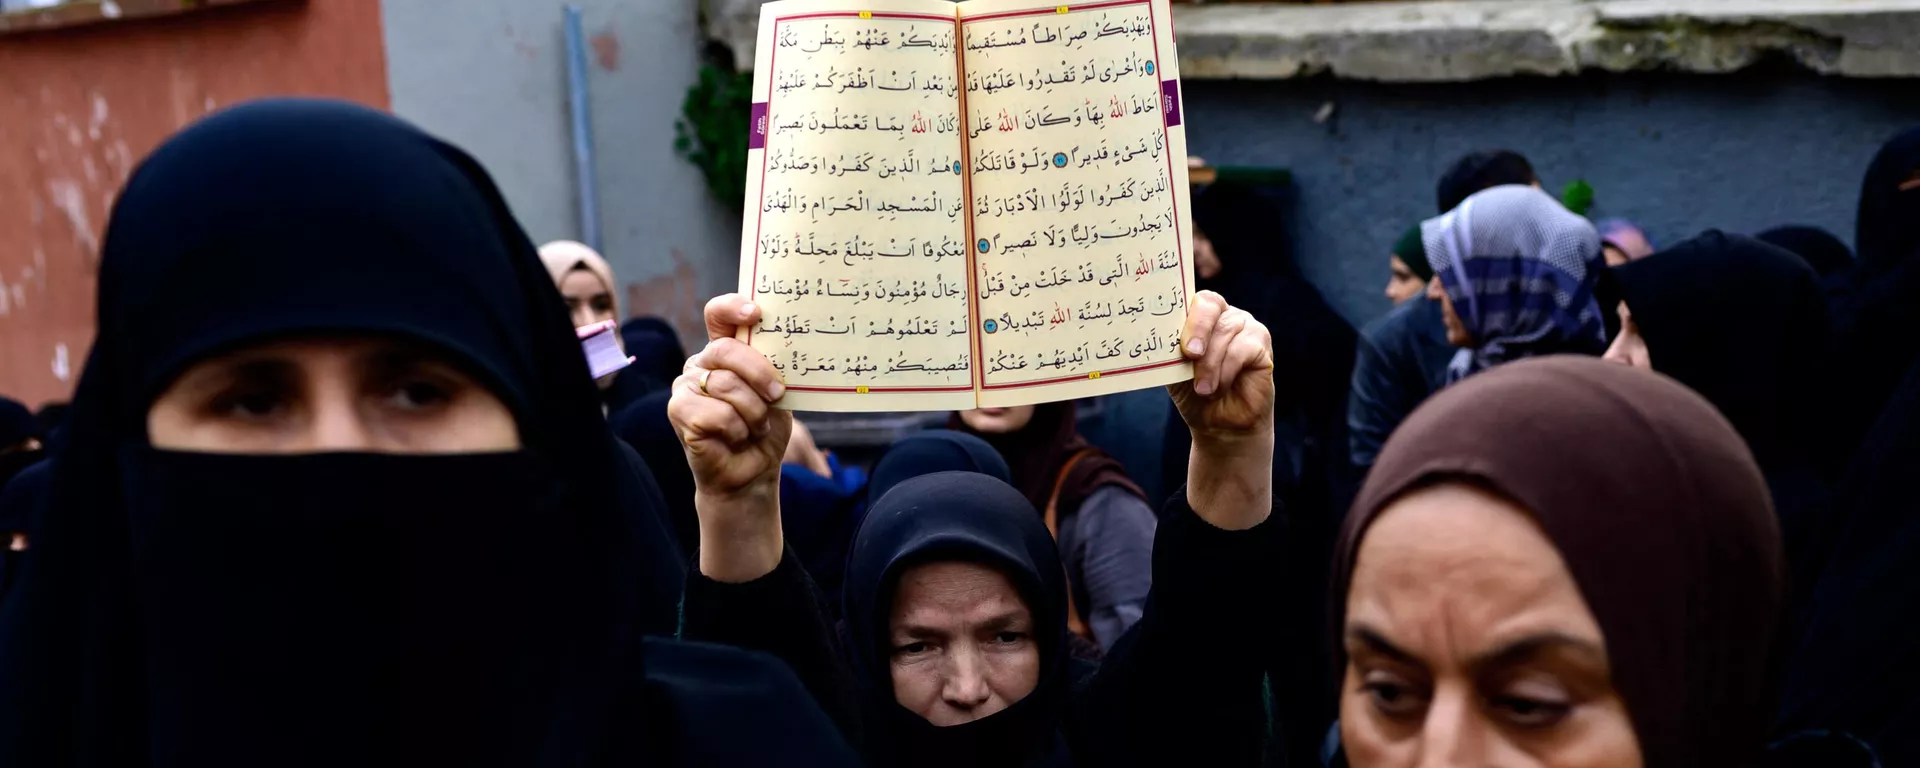 وَيَهْدِيَكُمْ صِرَاطًا مُسْتَقِيمًا
وَاُخْرٰى لَمْ تَقْدِرُوا عَلَيْهَا قَدْ
اَحَاطَ اللّٰهُ بِهَا وَكَانَ اللّٰهُ عَلٰى
كُلِّ شَىْءٍ قَدِيرًا ٢١ وَلَوْ قَاتَلَكُمُ
الَّذِينَ كَفَرُوا لَوَلَّوُا الْاَدْبَارَ ثُمَّ
لَا يَجِدُونَ وَلِيًّا وَلَا نَصِيرًا ٢٢
سُنَّةَ اللّٰهِ الَّتِى قَدْ خَلَتْ مِنْ قَبْلُ
وَلَنْ تَجِدَ لِسُنَّةِ اللّٰهِ تَبْدِيلًا ٢٣
وَهُوَ الَّذِى كَفَّ اَيْدِيَهُمْ عَنْكُمْ
وَاَيْدِيَكُمْ عَنْهُمْ بِبَطْنِ مَكَّةَ
مِنْ بَعْدِ اَنْ اَظْفَرَكُمْ عَلَيْهِمْ
وَكَانَ اللّٰهُ بِمَا تَعْمَلُونَ بَصِيرًا
هُمُ الَّذِينَ كَفَرُوا وَصَدُّوكُمْ
عَنِ الْمَسْجِدِ الْحَرَامِ وَالْهَدْىَ
مَعْكُوفًا اَنْ يَبْلُغَ مَحِلَّهُ وَلَوْلَا
رِجَالٌ مُؤْمِنُونَ وَنِسَاءٌ مُؤْمِنَاتٌ
لَمْ تَعْلَمُوهُمْ اَنْ تَطَؤُهُمْ
فَتُصِيبَكُمْ مِنْهُمْ مَعَرَّةٌ بِغَيْرِ